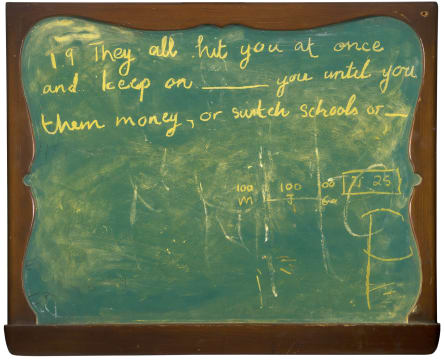 19 They all hit you at once
and keep on ______ you until you
them money, or switch schools or __
100 100 00
M J
25